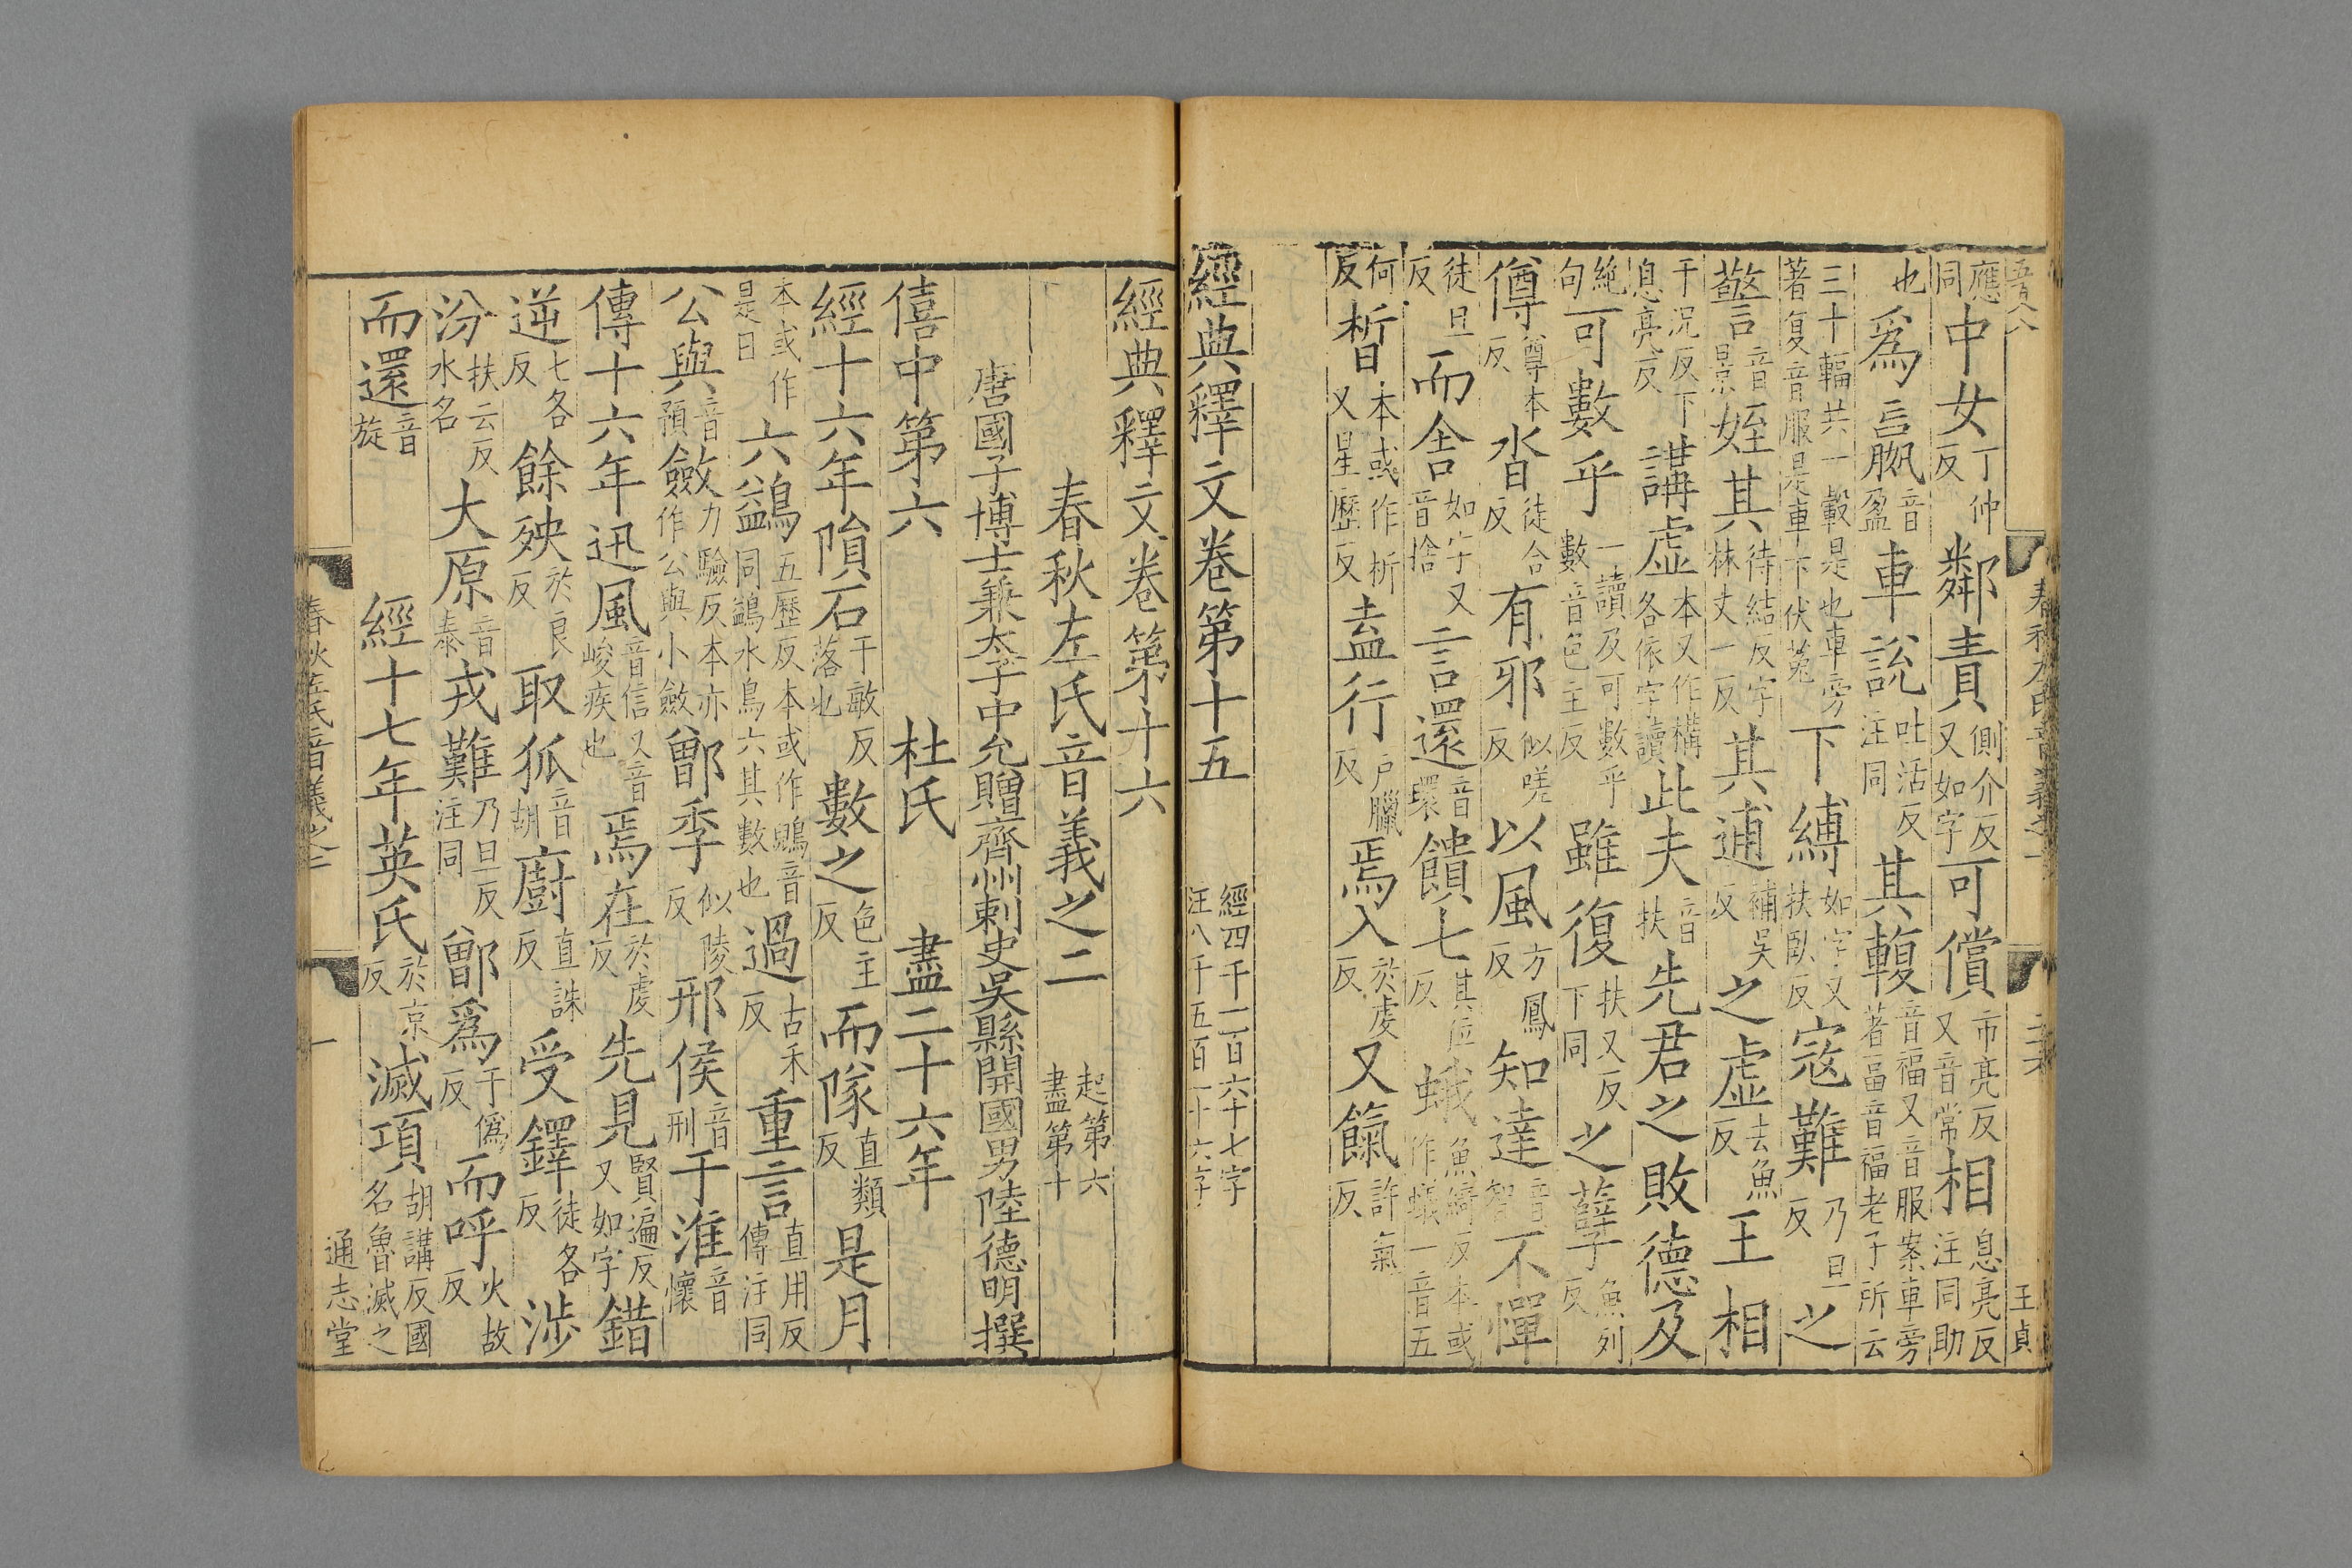 應同中女丁仲反鄰責側介反又如字可償市亮反又音常相息亮反注同助
也爲嬴音盈車說吐活反注同其輹音福又音服案車旁著畐音福老子所云
三十輻共一轂是也車旁著复音服是車下伏菟下縛如字又扶臥反寇難乃旦反之
警音景姪其待結反字林丈一反其逋補吳反之虛去魚反王相
于況反下息亮反講虛本又作構各依字讀此夫音扶先君之敗德及
絶句可數乎一讀及可數乎數音色主反雖復扶又反下同之孼魚列反
僔尊本反沓徒合反有邪似嗟反以風方鳳反知達音智不憚
徒旦反而舍如字又音捨二言還音環饋七其位反蛾魚綺反本或作蟻一音五
何反晳本或作析又星歷反盍行戶臘反焉入於虔反又餼許氣反
經典釋文卷第十五 經四千一百六十七字注八千五百一十六字
王貞
經典釋文卷第十六
春秋左氏音義之二 起第六盡第十
唐國子博士兼太子中允贈齊州刺史吳縣開國男陸德明撰
僖中第六 杜氏 盡二十六年
經十六年隕石于敏反落也數之色主反而隊直類反是月
本或作是日六鷁五歷反本或作鶂音同鷁水鳥六其數也過古禾反重言直用反傳注同
公與音預斂力驗反本亦作公與小斂鄫季似陵反邢侯音刑于淮音懷
傳十六年迅風音信又音峻疾也焉在於虔反先見賢遍反又如字錯
逆七各反餘殃於良反取狐音胡廚直誅反受鐸徒各反涉
汾扶云反水名大原音泰戎難乃旦反注同鄫爲于僞反而呼火故反
而還音旋經十七年英氏於京反滅項胡講反國名魯滅之
春秋左氏音義之二 一 通志堂